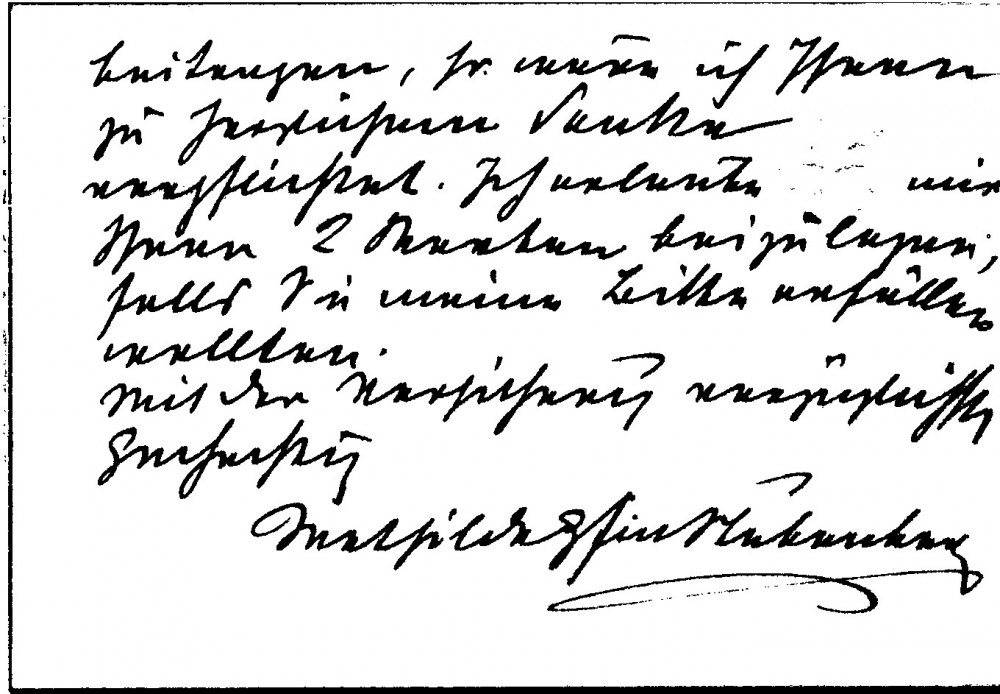 beitragen, so wäre ich Ihnen
zu herzlichem Danke
verpflichtet. Ich erlaube mir
Ihnen 2 Marken beizulegen,
falls Sie meine Bitte erfüllen
wollten.
Mit der Versicherung vorzüglichster
Hochachtung
Mathilde Gfin Stubenberg